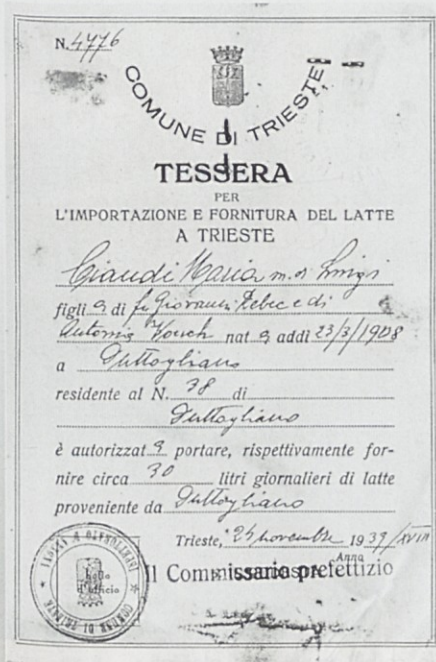 N. 4776
COMUNE DI TRIESTE
TESSERA
PER
L'IMPORTAZIONE E FORNITURA DEL LATTE
A TRIESTE
Ciaudi Maria m. di Luigi
figli a di fu Giovanni Rebec e di
Antonia nat a addì 23/3/1908
a Duttogliano
residente al N. 38 di
Duttogliano
è autorizzat a portare, rispettivamente for-
nire circa 30 litri giornalieri di latte
proveniente da Duttogliano
Trieste, novembre 1939/XVIII
Anno
Il Commissario prefettizio
bollo
d'ufficio